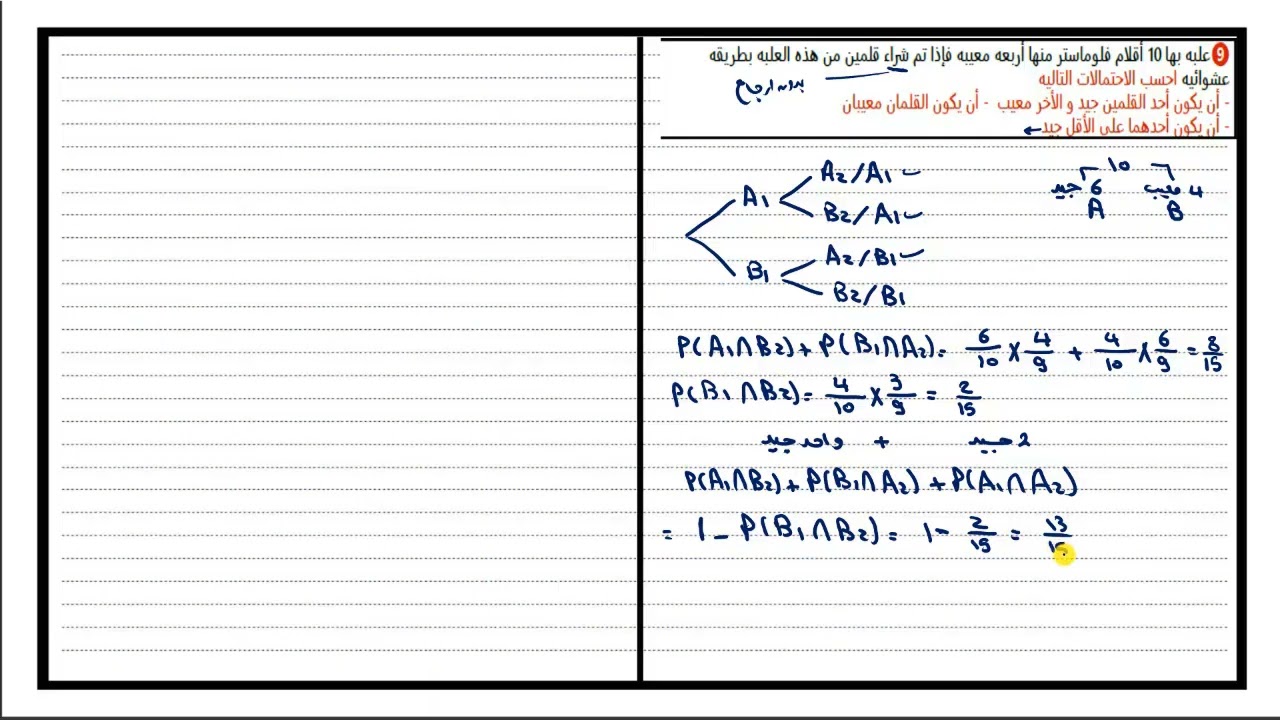 9 علبه بها 10 أقلام فلوماستر منها أربعه معيبه فإذا تم شراء قلمين من هذه العلبه بطريقه
عشوائيه احسب الاحتمالات التاليه
بدون ارجاع
- أن يكون أحد القلمين جيد و الأخر معيب - أن يكون القلمان معيبان
- أن يكون أحدهما على الأقل جيد
10
6 جيد 4 معيب
A B
A1 A2/A1
B2/A1
B1 A2/B1
B2/B1
P(A1∩B2)+P(B1∩A2)= 6/10 × 4/9 + 4/10 × 6/9 = 8/15
P(B1∩B2)= 4/10 × 3/9 = 2/15
2 جيد + واحد جيد
P(A1∩B2)+P(B1∩A2)+P(A1∩A2)
= 1 - P(B1∩B2) = 1 - 2/15 = 13/15